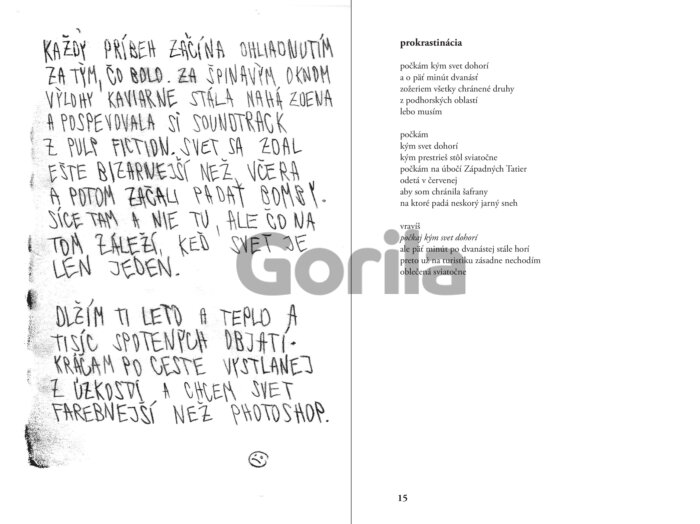 KAŽDÝ PRÍBEH ZAČÍNA OHLIADNUTÍM
ZA TÝM, ČO BOLO. ZA ŠPINAVÝM OKNOM
VÝLOHY KAVIARNE STÁLA NAHÁ ŽENA
A POSPEVOVALA SI SOUNDTRACK
Z PULP FICTION. SVET SA ZDAL
EŠTE BIZARNEJŠÍ NEŽ VČERA
A POTOM ZAČALI PADAŤ BOMBY.
SÍCE TAM A NIE TU, ALE ČO NA
TOM ZÁLEŽÍ, KEĎ SVET JE
LEN JEDEN.
DLŽÍM TI LETO A TEPLO A
TISÍC SPOTENÝCH OBJATÍ.
KRÁČAM PO CESTE VYSTLANEJ
Z ÚZKOSTÍ A CHCEM SVET
FAREBNEJŠÍ NEŽ PHOTOSHOP.
prokrastinácia
počkám kým svet dohorí
a o päť minút dvanásť
zožeriem všetky chránené druhy
z podhorských oblastí
lebo musím
počkám
kým svet dohorí
kým prestrieš stôl sviatočne
počkám na úbočí Západných Tatier
odetá v červenej
aby som chránila šafrany
na ktoré padá neskorý jarný sneh
vravíš
počkaj kým svet dohorí
ale päť minút po dvanástej stále horí
preto už na turistiku zásadne nechodím
oblečená sviatočne
15
Gorila